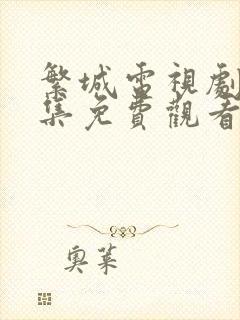 繁城電視劇
集免費觀看
奧萊